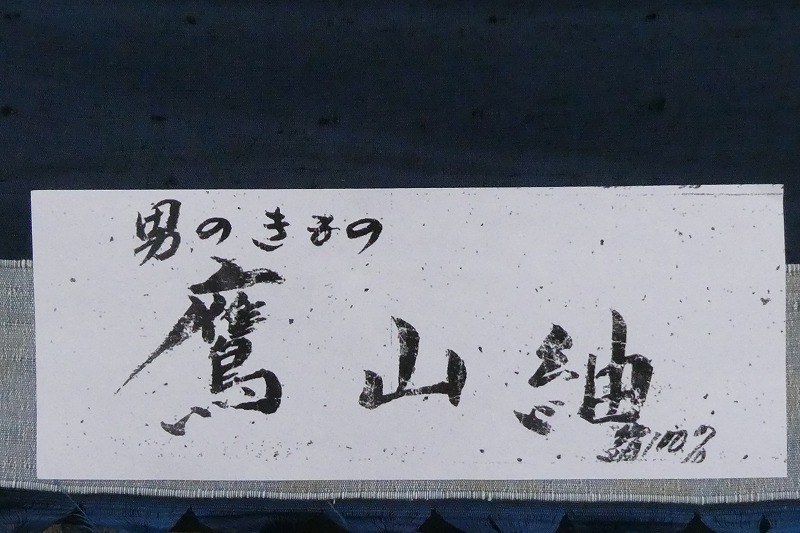 男のきもの
鷹山紬
絹100%